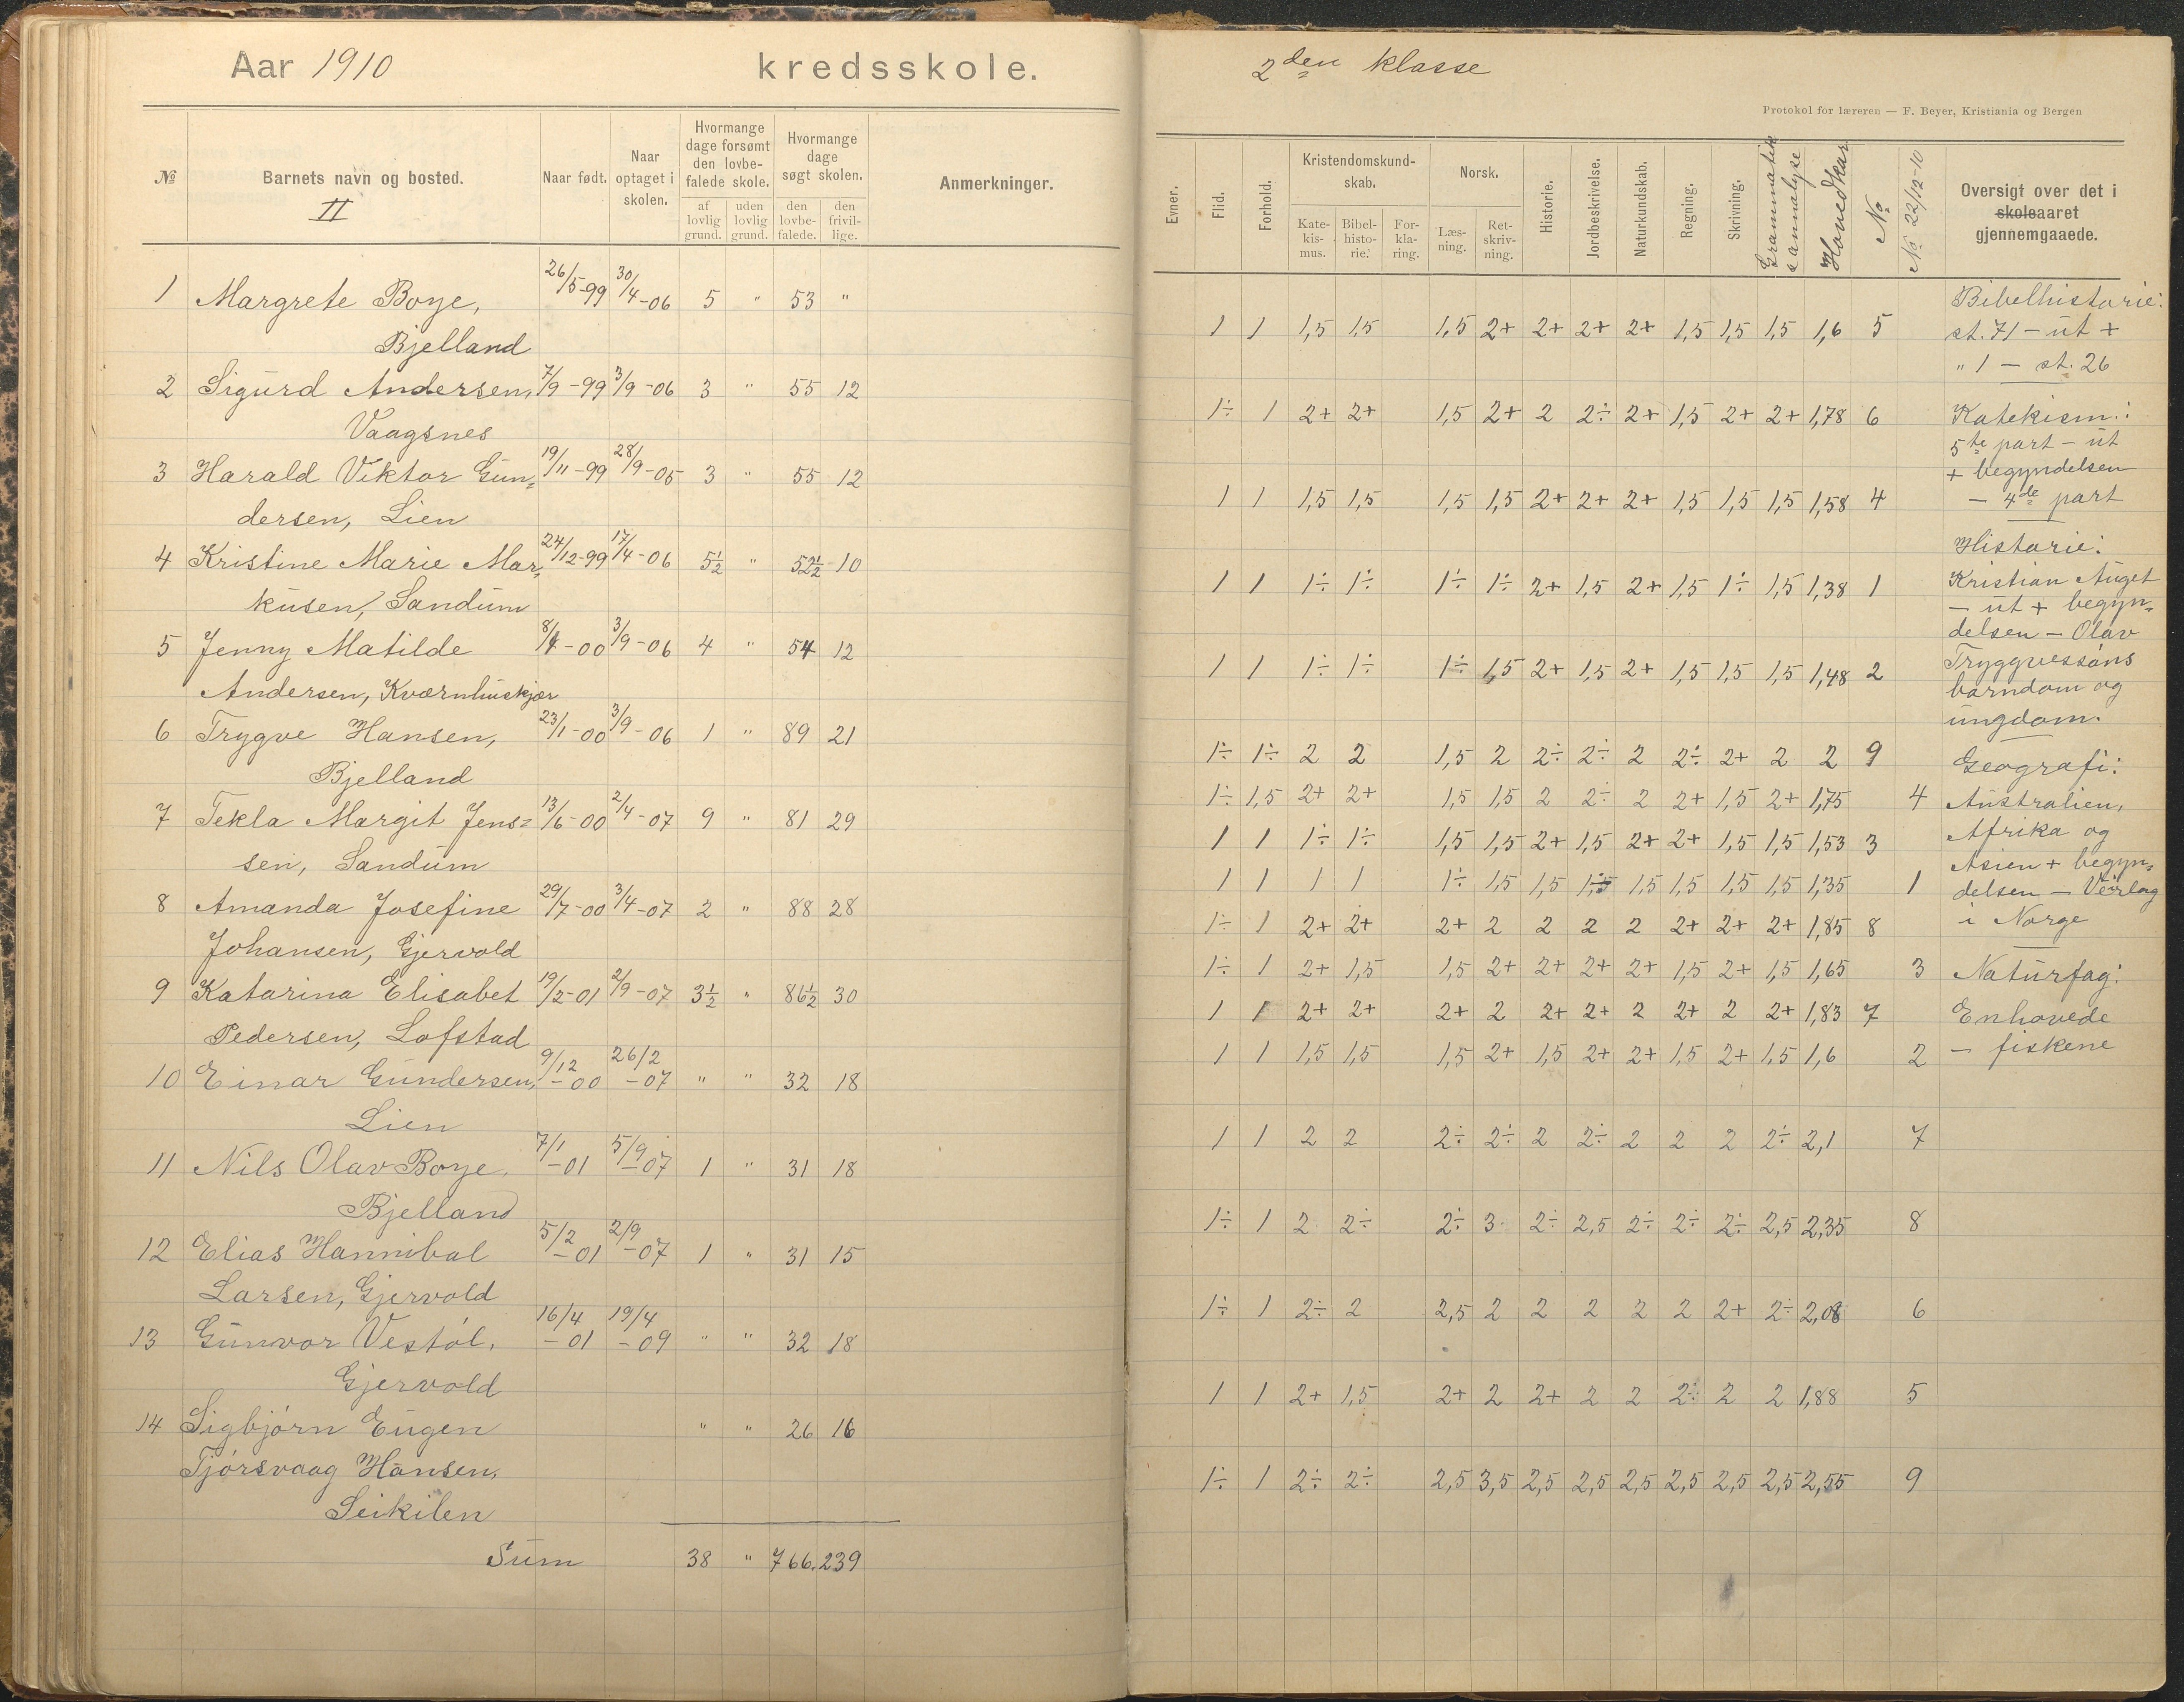 Aar 1910 kredsskole.
№ Barnets navn og bosted. Naar født. Naar optaget i skolen. Hvormange dage forsømt den lovbefalede skole. Hvormange dage søgt skolen. Anmerkninger.
II af lovlig grund. uden lovlig grund. den lovbefalede. den frivillige.
1 Margrete Boye, 26/5-99 30/4-06 5 " 53 "
Bjelland
2 Sigurd Andersen, 7/9-99 3/9-06 3 " 55 12
Vaagsnes
3 Harald Viktor Gun- 19/11-99 28/9-05 3 " 55 12
dersen, Lien
4 Kristine Marie Mar- 24/12-99 17/4-06 5½ " 52½ 10
kusen, Sandum
5 Jenny Matilde 8/1-00 3/9-06 4 " 54 12
Andersen, Kværnhuskjær
6 Trygve Hansen, 23/1-00 3/9-06 1 " 89 21
Bjelland
7 Tekla Margit Jens- 13/6-00 2/4-07 9 " 81 29
sen, Sandum
8 Amanda Josefine 29/7-00 3/4-07 2 " 88 28
Johansen, Gjervold
9 Katarina Elisabet 19/2-01 2/9-07 3½ " 86½ 30
Pedersen, Lofstad
10 Einar Gundersen, 9/12-00 26/2-07 " " 32 18
Lien
11 Nils Olav Boye. 7/1-01 5/9-07 1 " 31 18
Bjelland
12 Elias Hannibal 5/2-01 2/9-07 1 " 31 15
Larsen, Gjervold
13 Gunvor Vestøl. 16/4-01 19/4-09 " " 32 18
Gjervold
14 Sigbjørn Eugen " " 26 16
Tjørsvaag Hansen,
Seikilen
Sum 38 " 766. 239
2den klasse
Protokol for læreren — F. Beyer, Kristiania og Bergen
Evner. Flid. Forhold. Kristendomskundskab. Norsk. Historie. Jordbeskrivelse. Naturkundskab. Regning. Skrivning. Grammatik & annalyse Hovedkar. No No 22/12-10 Oversigt over det i skoleaaret gjennemgaaede.
Katekismus. Bibelhistorie. Forklaring. Læsning. Retskrivning.
1 1 1,5 1,5 1,5 2+ 2+ 2+ 2+ 1,5 1,5 1,5 1,6 5
1÷ 1 2+ 2+ 1,5 2+ 2 2÷ 2+ 1,5 2+ 2+ 1,78 6
1 1 1,5 1,5 1,5 1,5 2+ 2+ 2+ 1,5 1,5 1,5 1,58 4
1 1 1÷ 1÷ 1÷ 1÷ 2+ 1,5 2+ 1,5 1÷ 1,5 1,38 1
1 1 1÷ 1÷ 1÷ 1,5 2+ 1,5 2+ 1,5 1,5 1,5 1,48 2
1÷ 1÷ 2 2 1,5 2 2÷ 2÷ 2 2÷ 2+ 2 2 9
1÷ 1,5 2+ 2+ 1,5 1,5 2 2÷ 2 2+ 1,5 2+ 1,75 4
1 1 1÷ 1÷ 1,5 1,5 2+ 1,5 2+ 2+ 1,5 1,5 1,53 3
1 1 1 1 1÷ 1,5 1,5 1,5 1,5 1,5 1,5 1,5 1,35 1
1÷ 1 2+ 2+ 2+ 2 2 2 2 2+ 2+ 2+ 1,85 8
1÷ 1 2+ 1,5 1,5 2+ 2+ 2+ 2+ 1,5 2+ 1,5 1,65 3
1 1 2+ 2+ 2+ 2 2+ 2+ 2 2+ 2 2+ 1,83 7
1 1 1,5 1,5 1,5 2+ 1,5 2+ 2+ 1,5 2+ 1,5 1,6 2
1 1 2 2 2÷ 2÷ 2 2÷ 2 2 2 2÷ 2,1 7
1÷ 1 2 2÷ 2÷ 3 2÷ 2,5 2÷ 2÷ 2÷ 2,5 2,35 8
1÷ 1 2÷ 2 2,5 2 2 2 2 2 2+ 2÷ 2,08 6
1 1 2+ 1,5 2+ 2 2+ 2 2 2÷ 2 2 1,88 5
1÷ 1 2÷ 2÷ 2,5 3,5 2,5 2,5 2,5 2,5 2,5 2,5 2,55 9
Bibelhistorie:
st. 71 – ut +
" 1 – st. 26
Katekism.:
5te part – ut
+ begyndelsen
– 4de part
Historie:
Kristian August
– ut + begyn-
delsen – Olav
Tryggvessøns
barndom og
ungdom.
Geografi:
Australien,
Afrika og
Asien + begyn-
delsen – Veirlag
i Norge
Naturfag:
Enhovede
– fiskene